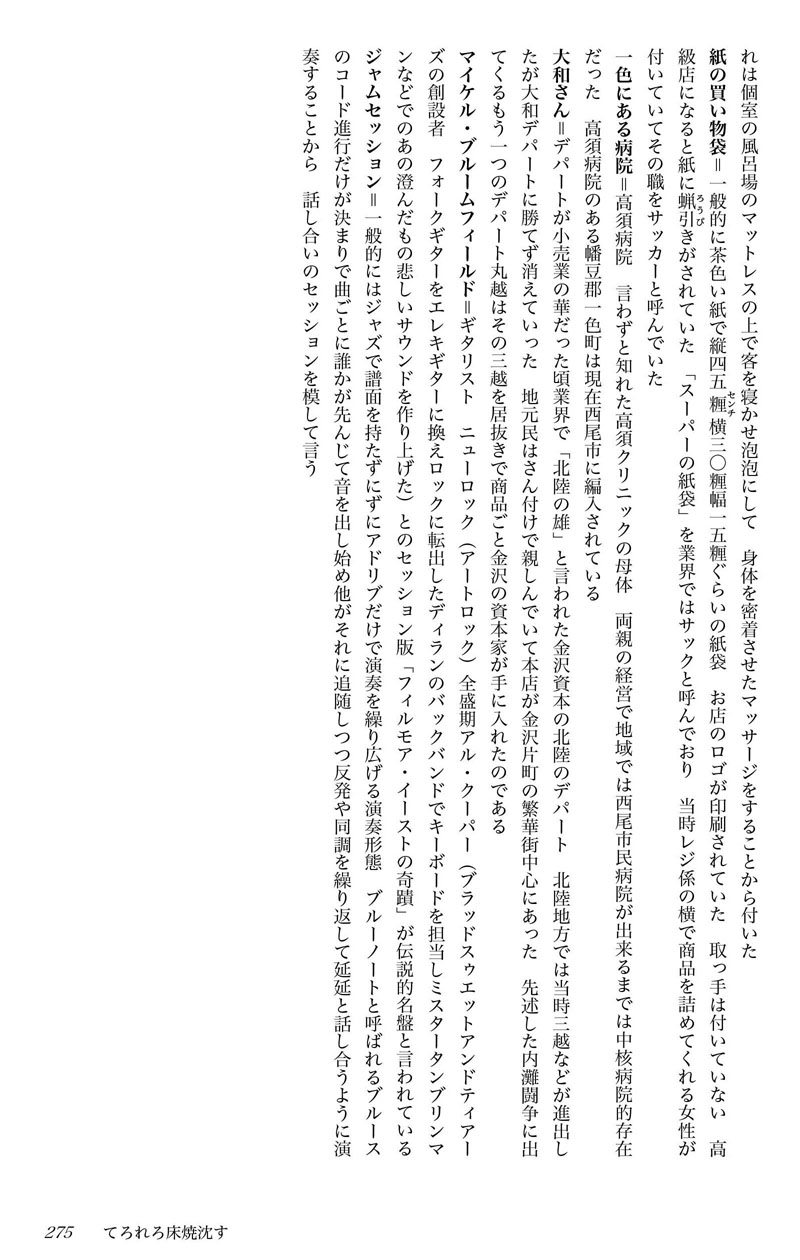 れは個室の風呂場のマットレスの上で客を寝かせ泡泡にして　身体を密着させたマッサージをすることから付いた
紙の買い物袋＝一般的に茶色い紙で縦四五糎横三〇糎幅一五糎ぐらいの紙袋　お店のロゴが印刷されていた　取っ手は付いていない　高
級店になると紙に蝋引きがされていた　「スーパーの紙袋」を業界ではサックと呼んでおり　当時レジ係の横で商品を詰めてくれる女性が
付いていてその職をサッカーと呼んでいた
一色にある病院＝高須病院　言わずと知れた高須クリニックの母体　両親の経営で地域では西尾市民病院が出来るまでは中核病院的存在
だった　高須病院のある幡豆郡一色町は現在西尾市に編入されている
大和さん＝デパートが小売業の華だった頃業界で「北陸の雄」と言われた金沢資本の北陸のデパート　北陸地方では当時三越などが進出し
たが大和デパートに勝てず消えていった　地元民はさん付けで親しんでいて本店が金沢片町の繁華街中心にあった　先述した内灘闘争に出
てくるもう一つのデパート丸越はその三越を居抜きで商品ごと金沢の資本家が手に入れたのである
マイケル・ブルームフィールド＝ギタリスト　ニューロック（アートロック）全盛期アル・クーパー（ブラッドスゥエットアンドティアー
ズの創設者　フォークギターをエレキギターに換えロックに転出したディランのバックバンドでキーボードを担当しミスタータンブリンマ
ンなどでのあの澄んだもの悲しいサウンドを作り上げた）とのセッション版「フィルモア・イーストの奇蹟」が伝説的名盤と言われている
ジャムセッション＝一般的にはジャズで譜面を持たずにずにアドリブだけで演奏を繰り広げる演奏形態　ブルーノートと呼ばれるブルース
のコード進行だけが決まりで曲ごとに誰かが先んじて音を出し始め他がそれに追随しつつ反発や同調を繰り返して延延と話し合うように演
奏することから　話し合いのセッションを模して言う
275　てろれろ床焼沈す